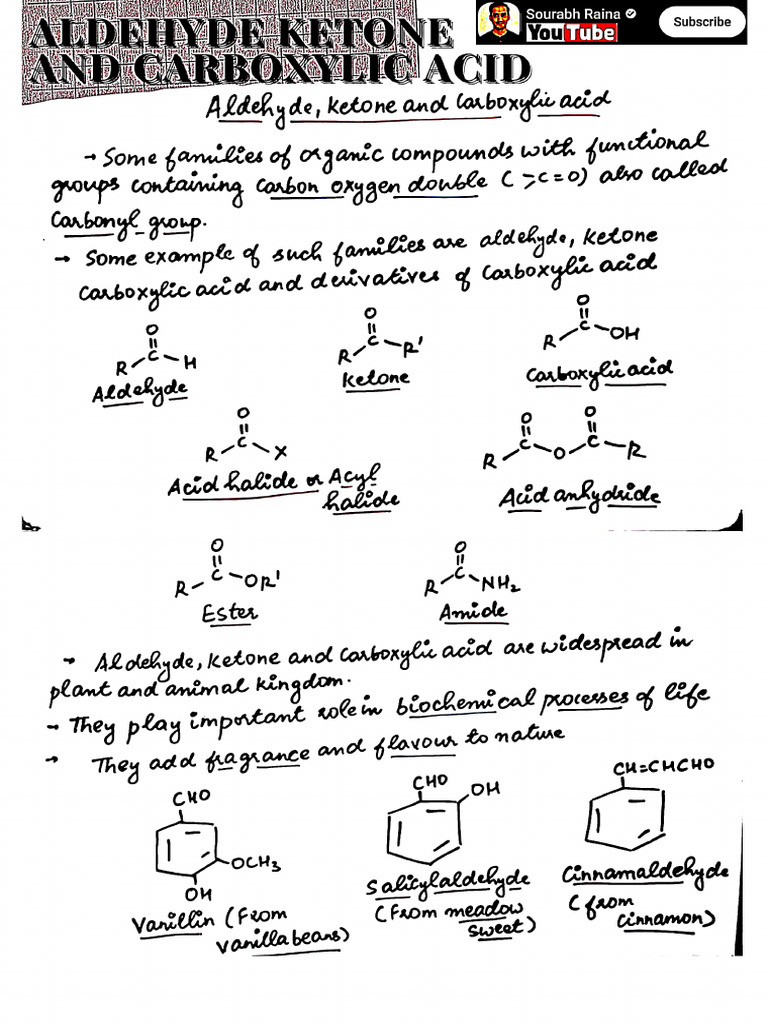 ALDEHYDE KETONE
AND CARBOXYLIC ACID
Sourabh Raina
YouTube
Subscribe
Aldehyde, Ketone and Carboxylic acid
→ Some families of organic compounds with functional
groups containing carbon oxygen double ( >C=O) also called
Carbonyl group.
→ Some example of such families are aldehyde, Ketone
Carboxylic acid and derivatives of Carboxylic acid
O
R C H
Aldehyde
O
R C R'
Ketone
O
R C OH
Carboxylic acid
O
R C X
Acid halide or Acyl
halide
O O
R C O C R
Acid anhydride
O
R C OR'
Ester
O
R C NH2
Amide
→ Aldehyde, Ketone and Carboxylic acid are widespread in
plant and animal kingdom.
→ They play important role in biochemical processes of life
→ They add fragrance and flavour to nature
CHO
OCH3
OH
Vanillin (From
vanilla beans)
CHO
OH
Salicylaldehyde
(From meadow
sweet)
CH=CHCHO
Cinnamaldehyde
(from
Cinnamon)